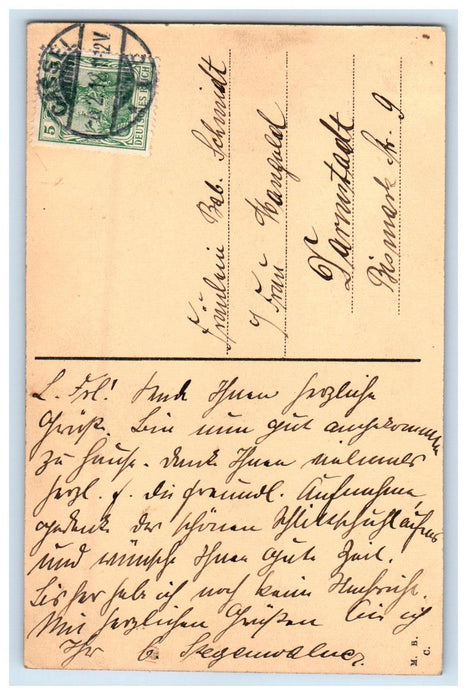 CASSEL
5
DEUTSCHES REICH
Fräulein Bab. Schmidt
Frau Mangold
Darmstadt
Bismark Str. 9
L. Frl! Sende Ihnen herzliche
Grüße. Bin nun gut angekommen
zu Hause. Danke Ihnen vielmals
herzl. f. die freundl. Aufnahme
gedenke des schönen Schlittschuhlaufens
und wünsche Ihnen gute Zeit.
Bisher hab ich noch keine Nachricht.
Mit herzlichen Grüßen bin ich
Ihr
M. B.
C.